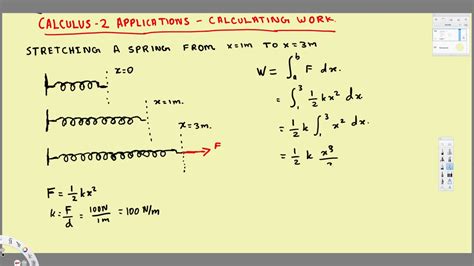 CALCULUS-2 APPLICATIONS - CALCULATING WORK.
STRETCHING A SPRING FROM x=1m TO x=3m
x=0
x=1m.
x=3m.
F
F = 1/2 kx²
k = F/d = 100N/1m = 100 N/m
W = ∫_a^b F dx.
= ∫_1^3 1/2 kx² dx
= 1/2 k ∫_1^3 x² dx.
= 1/2 k x³/